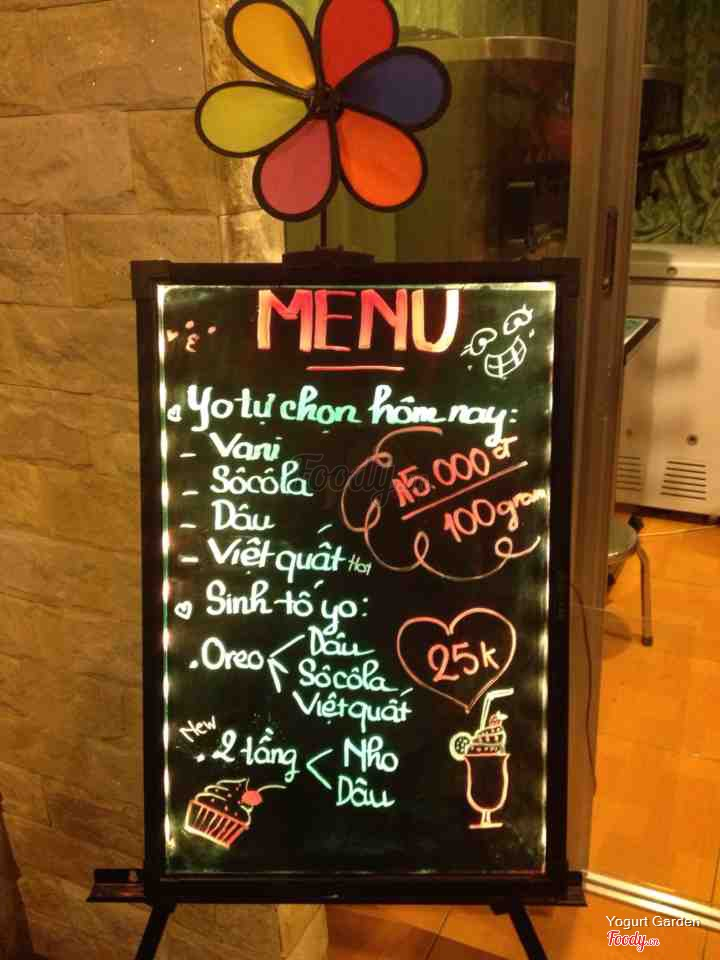 MENU
Yo tự chọn hôm nay:
- Vani
- Sôcôla
- Dâu
- Việt quất Hot
15.000đ
100gram
Sinh tố yo:
. Oreo < Dâu
Sôcôla
Việt quất
25k
New
. 2 tầng < Nho
Dâu
Foody
Yogurt Garden
Foody.vn